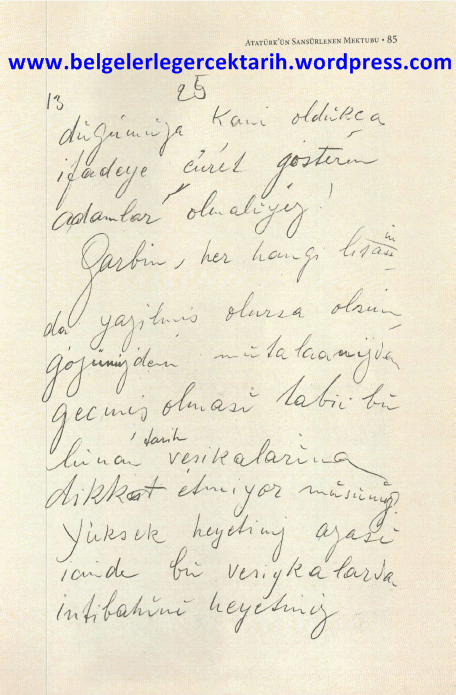 ATATÜRK'ÜN SANSÜRLENEN MEKTUBU • 85
www.belgelerlegercektarih.wordpress.com
13 25
düğümüza Kani oldukca
ifadeye cüret gösteren
adamlar olmaliyiz!
Garbin, her hangi lisanin
da yazilmis olursa olsun
gözünüzden mütalaanizdan
gecmis olmasi tabii bu
lunan tarih vesikalarina
dikkat etmiyor müsünüz?
Yüksek heyetiniz azasi
icinde bu vesiykalarda
intibahini heyetiniz